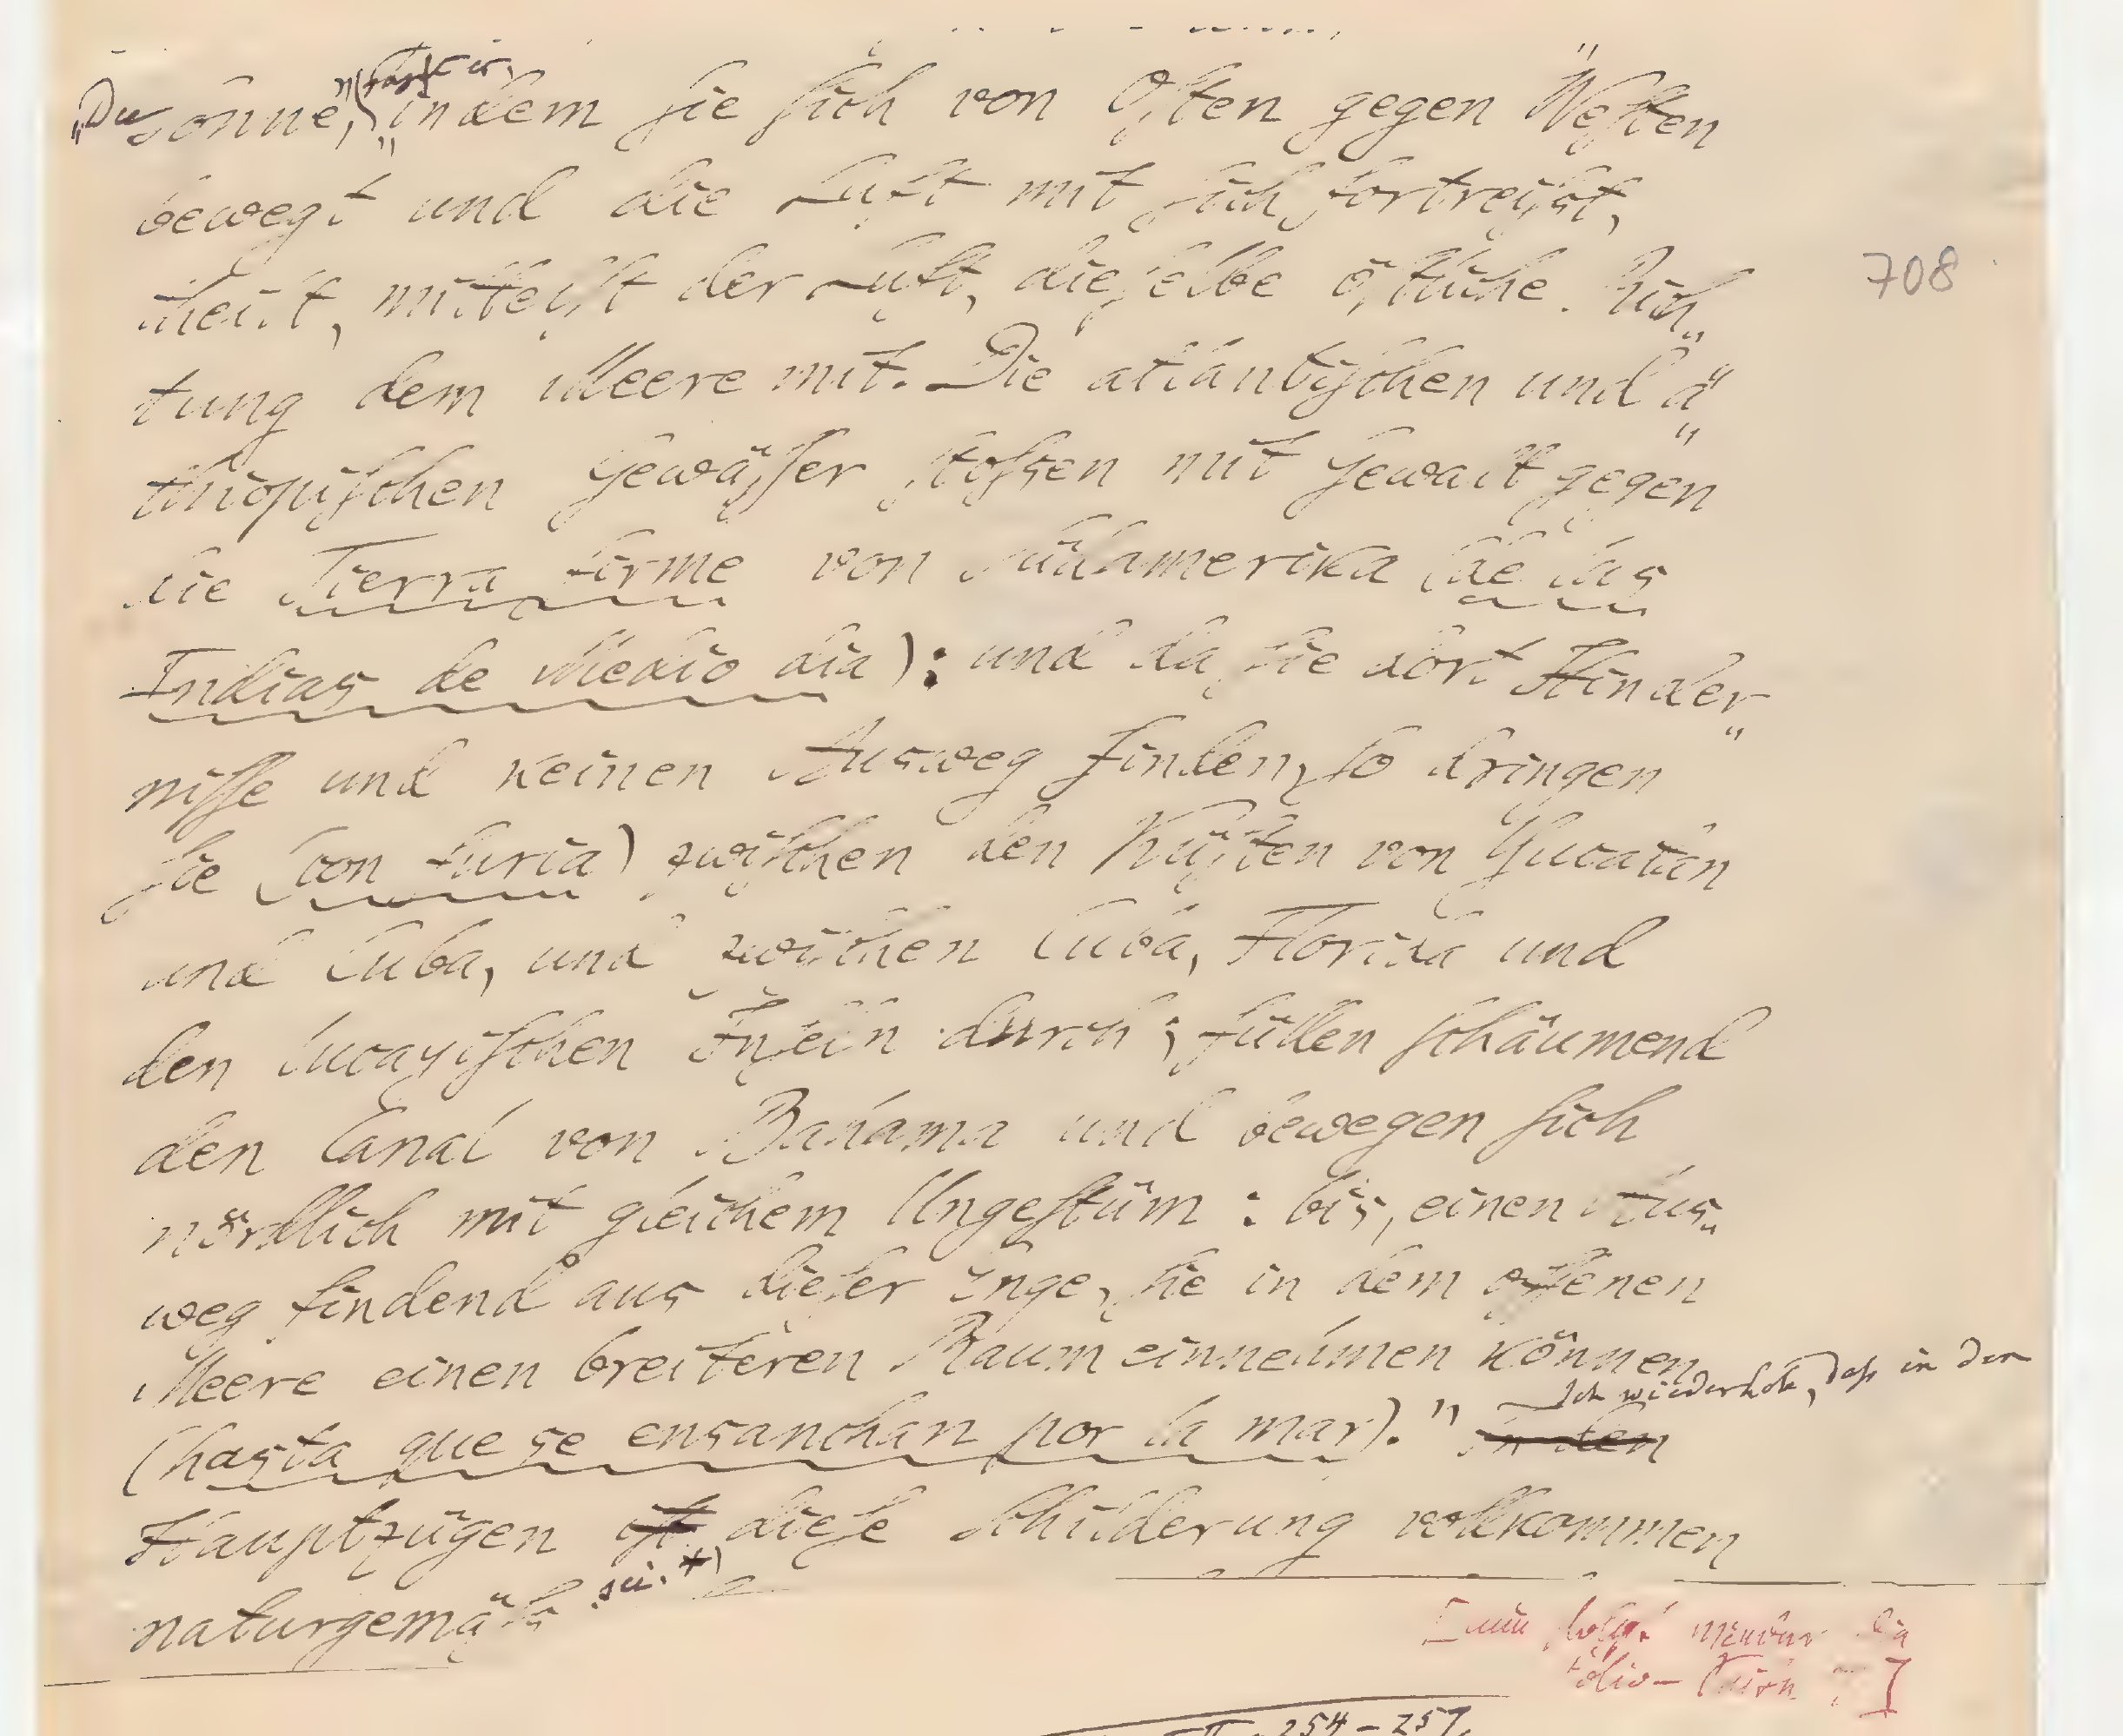 "Die Sonne," (sagt er,) "indem sie sich von Osten gegen Westen
bewegt und die Luft mit sich fortreißt,
theilt, mittelst der Luft, dieselbe östliche Rich„
tung dem Meere mit. Die atlantischen und ä„
thiopischen Gewässer stoßen mit Gewalt gegen
die Tierra firme von Südamerika (de las
Indias de Medio dia): und da sie dort Hinder„
nisse und keinen Ausweg finden, so dringen
sie (con furia) zwischen den Küsten von Yucatan
und Cuba, und zwischen Cuba, Florida und
den lucayischen Inseln durch; füllen schäumend
den Canal von Bahama und bewegen sich
nördlich mit gleichem Ungestüm: bis, einen Aus„
weg findend aus dieser Enge, sie in dem offenen
Meere einen breiteren Raum einnehmen können
(hasta que se ensanchan por la mar)." in den Ich wiederhole, daß in den
Hauptzügen ist diese Schilderung vollkommen
naturgemäß sei. *)
708
254 – 257.